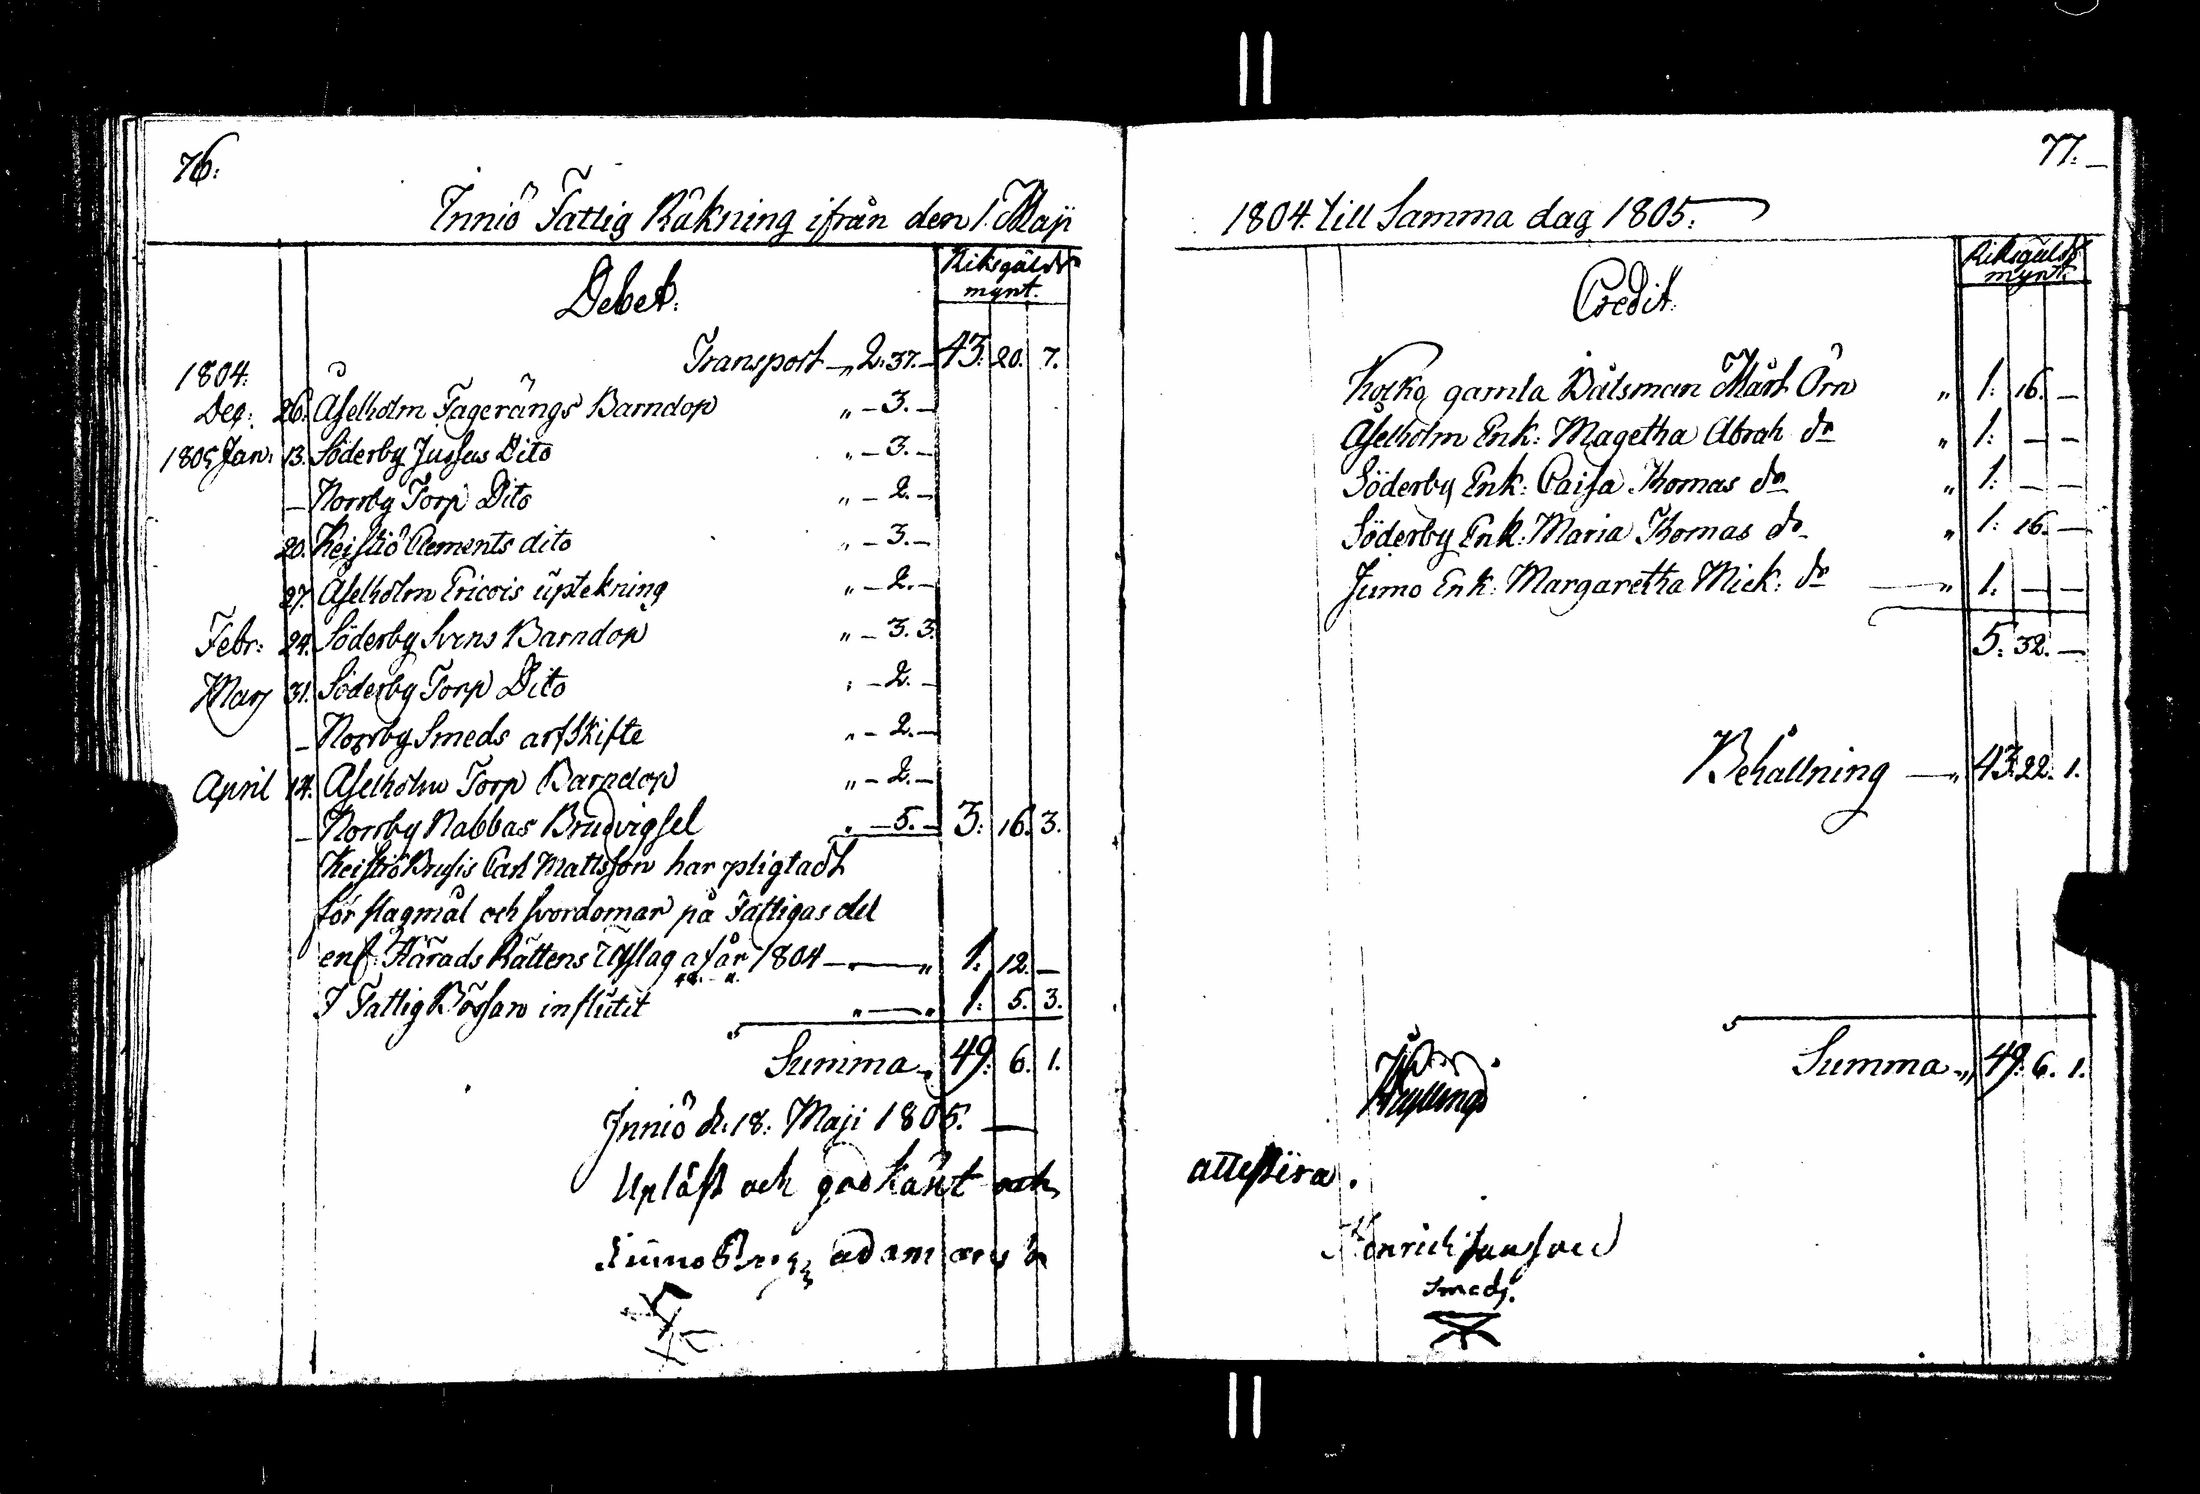 76.
Inniö Fattig Räkning ifrån den 1. Maji
Debet.
Riksgälds
mynt.
Transport 2. 37. 43. 20. 7.
1804.
Dec: 26. Åselholm Fagerängs Barndop " – 3. –
1805 Jan: 13. Söderby Jussas Dito " – 3. –
– Norrby Torp Dito " – 2. –
20. Keistiö Clements dito " – 3. –
27. Åselholm Ericois uptekning " – 2. –
Febr: 24. Söderby Svens Barndop " – 3. 3.
Mars 31. Söderby Torp Dito " – 2. –
– Norrby Smeds arfskifte " – 2. –
April 14. Åselholm Torp Barndop " – 2. –
– Norrby Nabbas Brudvigsel " – 5. – 3. 16. 3.
Keistiö Brusis Carl Mattsson har pligtadt
för slagmål och svordomar på Fattigas del
enl. Härads Rättens Utslag af år 1804 – " 1. 12. –
I Fattig Bössan influtit " – " 1. 5. 3.
Summa 49. 6. 1.
Inniö d. 18. Maji 1805. –
Upläst och godkänt
adam
77.
1804. till Samma dag 1805.
Credit.
Riksgälds
mynt.
Kolko gamla Båtsman Mårt Örn " 1. 16. –
Åselholm Enk: Magetha Abrah dr " 1. – –
Söderby Enk: Caisa Thomas dr " 1. – –
Söderby Enk: Maria Thomas dr " 1. 16. –
Jumo Enk: Margaretha Mick: dr – " 1. – –
5. 32. –
Behållning – " 43. 22. 1.
Summa " 49. 6. 1.
attestera.
Henrich Jansson
Smeds.